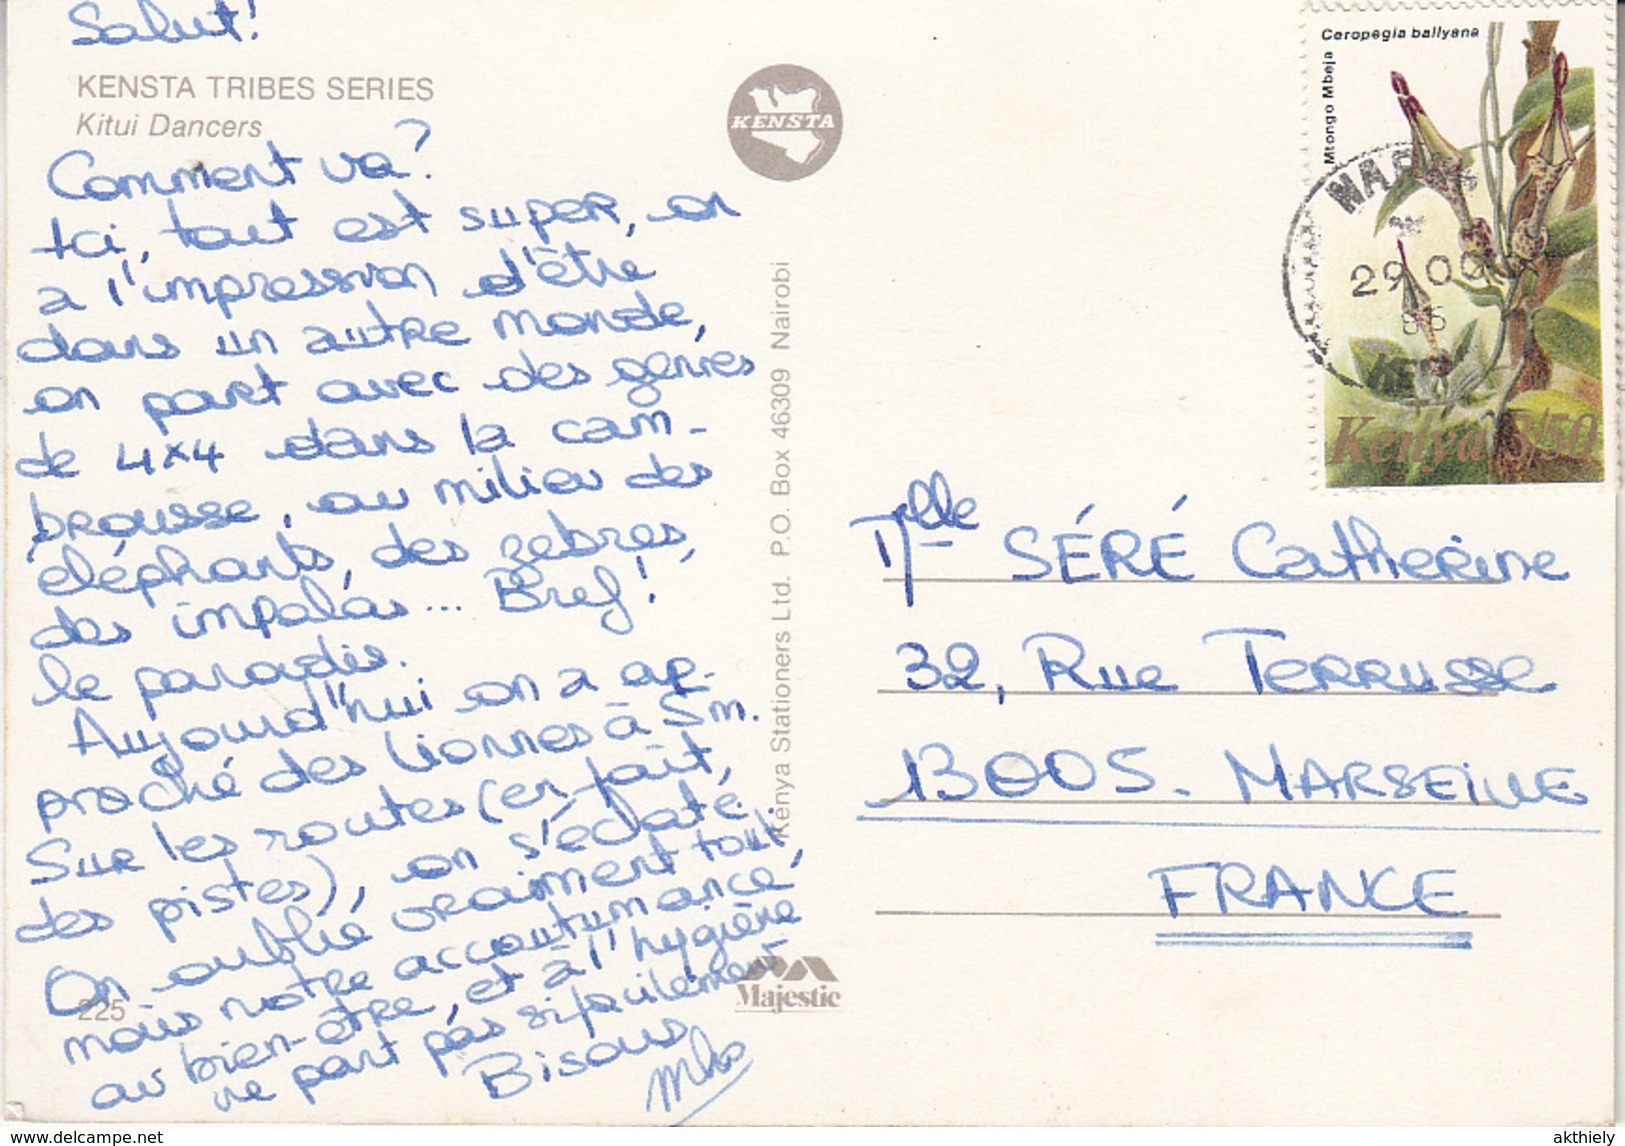 Salut!
KENSTA TRIBES SERIES
Kitui Dancers
Comment va?
Ici, tout est super, on
a l'impression d'être
dans un autre monde,
on part avec des genres
de 4x4 dans la cam-
brousse, au milieu des
éléphants, des zebres,
des impalas... Bref!
le paradis.
Aujourd'hui on a ap-
proché des lionnes à 5m.
Sur les routes (en fait,
des pistes), on s'éclate.
On oublie vraiment tout
mais notre accoutumance,
au bien-être, et à l'hygiène
ne part pas si facilement
Bisous
225
KENSTA
Kenya Stationers Ltd. P.O. Box 46309 Nairobi
Majestic
Ceropegia ballyana
Mtongo Mbeja
29
Kenya 3/50
Mlle SÉRÉ Catherine
32, Rue TERRUSSE
13005. MARSEILLE
FRANCE
akthiely